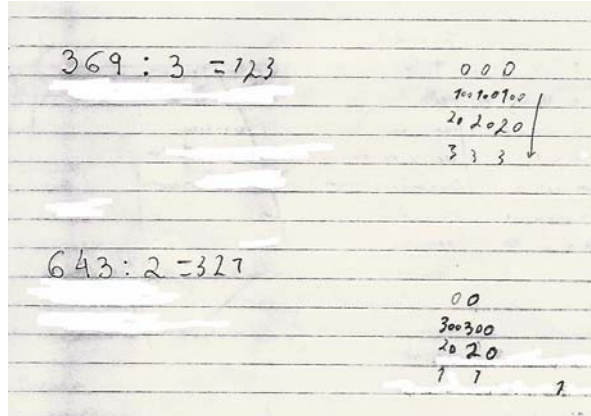 369 : 3 = 123
0 0 0
100 100 100
20 20 20
3 3 3
643 : 2 = 321
0 0
300 300
20 20
1 1 1